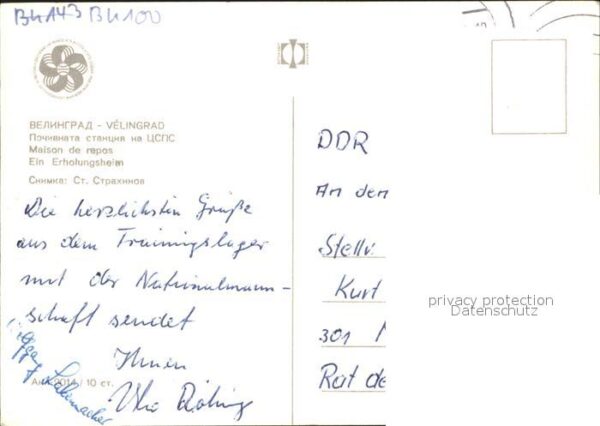 BH143 BH100
ВЕЛИНГРАД - VÉLINGRAD
Почивната станция на ЦСПС
Maison de repos
Ein Erholungsheim
Снимка: Ст. Страхинов
Die herzlichsten Grüße
aus dem Trainingslager
mit der Nationalmann-
schaft sendet
Ihnen
Ак. 2014 / 10 ст.
DDR
An den
Stellv.
Kurt
301
Rat de
privacy protection
Datenschutz